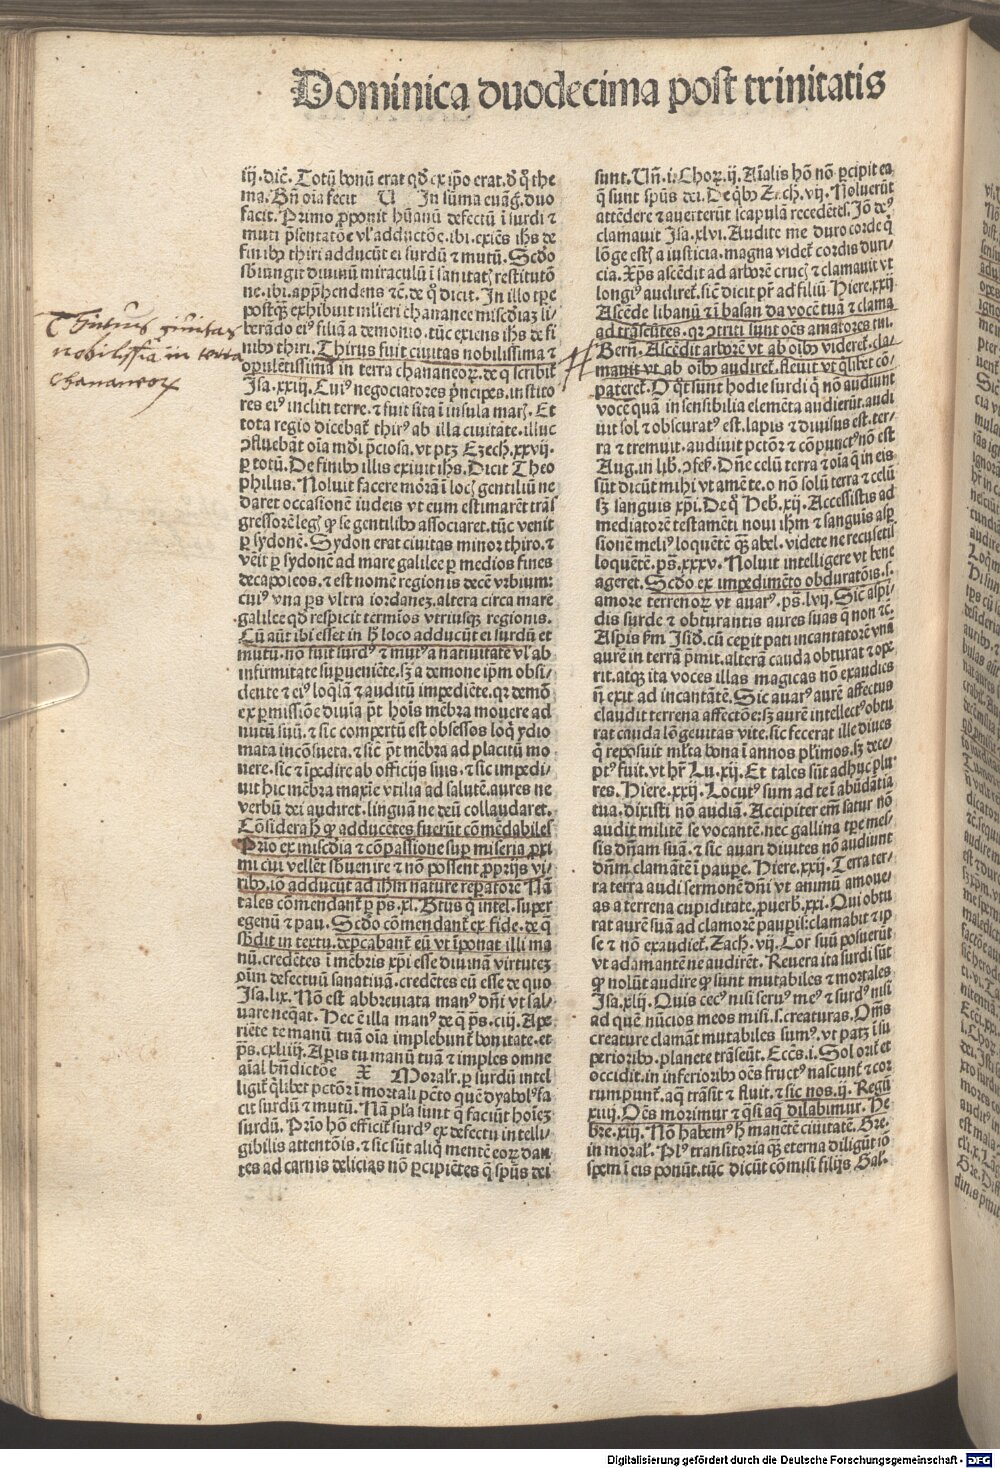 Dominica duodecima post trinitatis
iij. dicẽ. Totũ bonũ erat qđ ex ip̃o erat. đ q̃ the
ma. Bñ oĩa fecit V In sũma euãg̃. duo
facit. Primo ꝓponit hũanũ defectũ ĩ surdi ⁊
muti p̃sentatõe vľ adductõe. ibi. exiẽs ihs de
finibꝰ thiri adducũt ei surdũ ⁊ mutũ. Scđo
sbiungit diuinũ miraculũ ĩ sanitatꝭ restitutõ
ne. ibi. app̃hendens ⁊c̃. de q̃ dicit. In illo tp̃e
postqꝫ exhibuit mlieri chananee misc̃diaꝫ li
berãdo eiꝰ filiã a demonio. tũc exiens ihs de fi
nibꝰ thiri. Thirus fuit ciuitas nobilissima ⁊
opulẽtissima in terra chananeoꝝ. de q̃ scribit᷑
Isa. xxiij. Cuiꝰ negociatores p̃ncipes. instito
res eiꝰ incliti terre. ⁊ fuit sita ĩ insula marꝭ. Et
tota regio dicebat᷑ thirꝰ ab illa ciuitate. illuc
ꝯfluebãt oĩa mđi p̃ciosa. vt ptꝫ Ezech. xxvij.
ꝑ totũ. De finibꝰ illis exiuit ihs. Dicit Theo
philus. Noluit facere morã ĩ locꝭ gentiliũ ne
daret occasionẽ iudeis vt eum estimarẽt trãs
gressorẽ legꝭ ꝙ se gentilibꝰ associaret. tũc venit
ꝑ sydonẽ. Sydon erat ciuitas minor thiro. ⁊
vẽit ꝑ sydonẽ ad mare galilee ꝑ medios fines
decapoleos. ⁊ est nomẽ regionis decẽ vrbium:
cuiꝰ vna ps vltra iordanez. altera circa mare
galilee qđ respicit termĩos vtriusqꝫ regionis.
Cũ aũt ibi esset in h̃ loco adducũt ei surdũ et
mutũ. nõ fuit surdꝰ ⁊ mutꝰ a natiuitate vľ ab
infirmitate supueniẽte. sꝫ a demone ip̃m obsi/
dente ⁊ eiꝰ loq̃lã ⁊ auditũ impediẽte. qꝛ demõ
ex ꝑmissiõe diuĩa p̃t hoĩs mẽbra mouere ad
nutũ suũ. ⁊ sic compertũ est obsessos loq̃ ydio
mata incõsueta. ⁊ sic̃ p̃t mẽbra ad placitũ mo
uere. sic ⁊ ĩpedire ab officijs suis. ⁊ sic impedi/
uit hic mẽbra maxĩe vtilia ad salutẽ. aures ne
verbũ dei audiret. linguãne deũ collaudaret.
Cõsidera h̃ ꝙ adducẽtes fuerũt cõmẽdabiles
Prĩo ex misc̃dia ⁊ cõpassione sup miseria ꝓxi
mi cui vellẽt sbuenire ⁊ nõ possent ꝓprijs vi/
ribꝰ. iõ adducũt ad ihm nature repatorẽ. Nã
tales cõmendant᷑ ꝑ p̃s. xl. Btũs q̃ intel. super
egenũ ⁊ pau. Scđo cõmendant᷑ ex fide. de q̃
sbdit in textu. dep̃cabant᷑ eũ vt ĩponat illi ma
nũ. credẽtes ĩ mẽbris xp̃i esse diuinã virtutez
oĩm defectuũ sanatiuã. credẽtes eũ esse de quo
Isa. lix. Nõ est abbreuiata manꝰ dñi vt sal/
uare neqat. Hec ẽ illa manꝰ de q̃ p̃s. ciij. Ape
riẽte te manũ tuã oĩa implebunt᷑ bonitate. et
p̃s. cxliiij. Apis tu manũ tuã ⁊ imples omne
aĩal bñdictõe X Moralr̃. ꝑ surdũ intel
ligit᷑ q̃libet pctõr ĩ mortali pctõ quẽ dyabolꝰ fa
cit surdũ ⁊ mutũ. Nã pľa sunt q̃ faciũt hoĩez
surdũ. Prĩo hõ efficit᷑ surdꝰ ex defectu intelli/
gibilis attentõis. ⁊ sic sũt aliq̃ mentẽ eoꝝ dan
tes ad carnis delicias nõ ꝑcipiẽtes q̃ spũs dei
sunt. Vñ. i. Choꝝ. ij. Aĩalis hõ nõ ꝑcipit ea
q̃ sunt spũs dei. De q̃bꝰ Zach. vij. Noluerũt
attẽdere ⁊ auerterũt scapulã recedẽtẽ. Iõ deꝰ
clamauit Isa. xlvi. Audite me duro corde q̃
lõge estꝭ a iusticia. magna videt᷑ cordis duri/
cia. Xp̃s ascẽdit ad arborẽ crucꝭ ⁊ clamauit vt
longiꝰ audiret᷑. sic̃ dicit pr̃ ad filiũ Hiere. xxij
Ascẽde libanũ ⁊ ĩ basan da vocẽ tuã ⁊ clama
ad trãseũtes. qꝛ ꝯtriti sunt oẽs amatores tui.
Bern̄. Ascẽdit arborẽ vt ab oĩbꝰ videret᷑. cla-
mauit vt ab oĩbꝰ audiret᷑. fleuit vt q̃libet cõ/
pateret᷑. O q̃t sunt hodie surdi q̃ nõ audiunt
vocẽ quã insensibilia elemẽta audierũt. audi
uit sol ⁊ obscuratꝰ est. lapis ⁊ diuisus est. ter/
ra ⁊ tremuit. audiuit pctõr ⁊ cõpunctꝰ nõ est
Aug. in lib. ꝯfes̃. Dñe celũ terra ⁊ oĩa q̃ in eis
sũt dicũt mihi vt amẽ te. o nõ solũ terra ⁊ celũ
sꝫ sanguis xp̃i. De q̃ Heb. xij. Accessistis ad
mediatorẽ testamẽti noui ihm ⁊ sanguis asp
sionẽ meliꝰ loquẽtẽ q̃ꝫ abel. videte ne recusetis
loquẽtẽ. p̃s. xxxv. Noluit intelligere vt bene
ageret. Scđo ex impedimẽto obduratõis. s.
amore terrenoꝝ vt auarꝰ. p̃s. lvij. Sic̃ aspi/
dis surde ⁊ obturantis aures suas q̃ non ⁊c̃.
Aspis ẽm Isid. cũ ceperit pati incantatorẽ vnã
aurẽ in terrã p̃mit. alterã cauda obturat ⁊ ope
rit. atqꝫ ita voces illas magicas nõ exaudies
ñ exit ad incantãtẽ. Sic auarꝰ aurẽ affectus
claudit terrena affectõe: sꝫ aurẽ intellectꝰ obtu
rat cauda lõgeuitas vite. sic fecerat ille diues
q̃ reposuit mľta bona ĩ annos pľimos. sꝫ dece/
ptꝰ fuit. vt hr̃ Lu. xij. Et tales sũt adhuc plu
res. Hiere. xxij. Locutꝰ sum ad te ĩ abũdãtia
tua. dixisti nõ audiã. Accipiter em̃ satur nõ
audit militẽ se vocantẽ. nec gallina tp̃e mes/
sis dñam suã. ⁊ sic auari diuites nõ audiunt
dñm clamãtẽ ĩ paupe. Hiere. xxij. Terra ter/
ra terra audi sermonẽ dñi vt animũ amoue/
as a terena cupiditate. ꝓuerb. xxi. Qui obtu
rat aurẽ suã ad clamorẽ paupis: clamabit ⁊ ip
se ⁊ nõ exaudiet᷑. Zach. vij. Cor suũ posuerũt
vt adamantẽ ne audirẽt. Reuera ita surdi sũt
ꝙ nolũt audire ꝙ sunt mutabiles ⁊ mortales
Isa. xlij. Quis cecꝰ nisi seruꝰ meꝰ ⁊ surdꝰ nisi
ad quẽ nũcios meos misi. s. creaturas. Om̃s
creature clamãt mutabiles sumꝰ. vt patꝫ ĩ su
perioribꝰ. planete trãseũt. Eccs̃. i. Sol orit᷑ et
occidit. in inferioribꝰ oẽs fructꝰ nascunt᷑ ⁊ cor
rumpunt᷑. aq̃ trãsit ⁊ fluit. ⁊ sic nos. ij. Regũ
xiiij. Oẽs morimur ⁊ q̃si aq̃ dilabimur. He
bre. xiij. Nõ habemꝰ h̃ manẽtẽ ciuitatẽ. Gre.
in moral̃. Plꝰ transitoria q̃ꝫ eterna diligũt iõ
spem ĩ eis ponũt. tũc dicũt cõmisi filijs Gal̃.
Thirus ciuitas
nobilissia in terra
chananeoꝝ
Digitalisierung gefördert durch die Deutsche Forschungsgemeinschaft - DFG